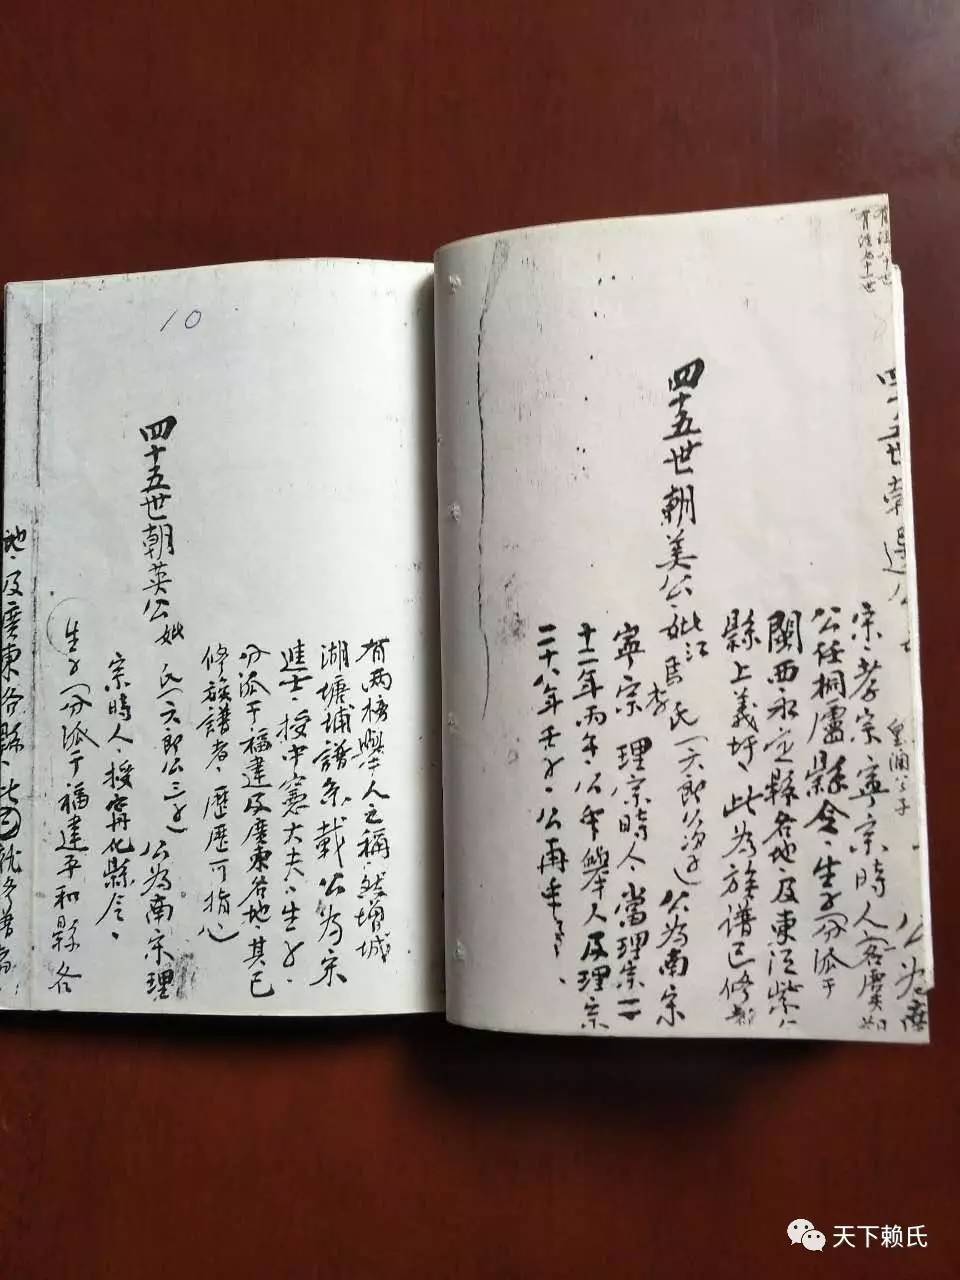 四十五世朝選公
公為南
宗、孝宗、寧宗時人
公任桐廬縣令、生子分派于
閩西永定縣各地、及東江紫
縣上義圩、此為族譜已修
四十五世朝美公 妣江氏(六郎公次子)公為南宗
寧宗 理宗時人、當理宗二
十一年丙午、公登舉人及理宗
二十八年壬子、公再
10
有两榜舉人之稱然增城
湖塘埔譜系載公为宋
進士、授中憲大夫、生子
分派于福建及廣東各地、其已
修族譜者、歷歷可指
四十五世朝英公 妣 氏(六郎公三子)公為南宋理
宗時人、授寧化縣令、
生子(分派于福建平和縣各
地、及廣東各縣、
天下赖氏